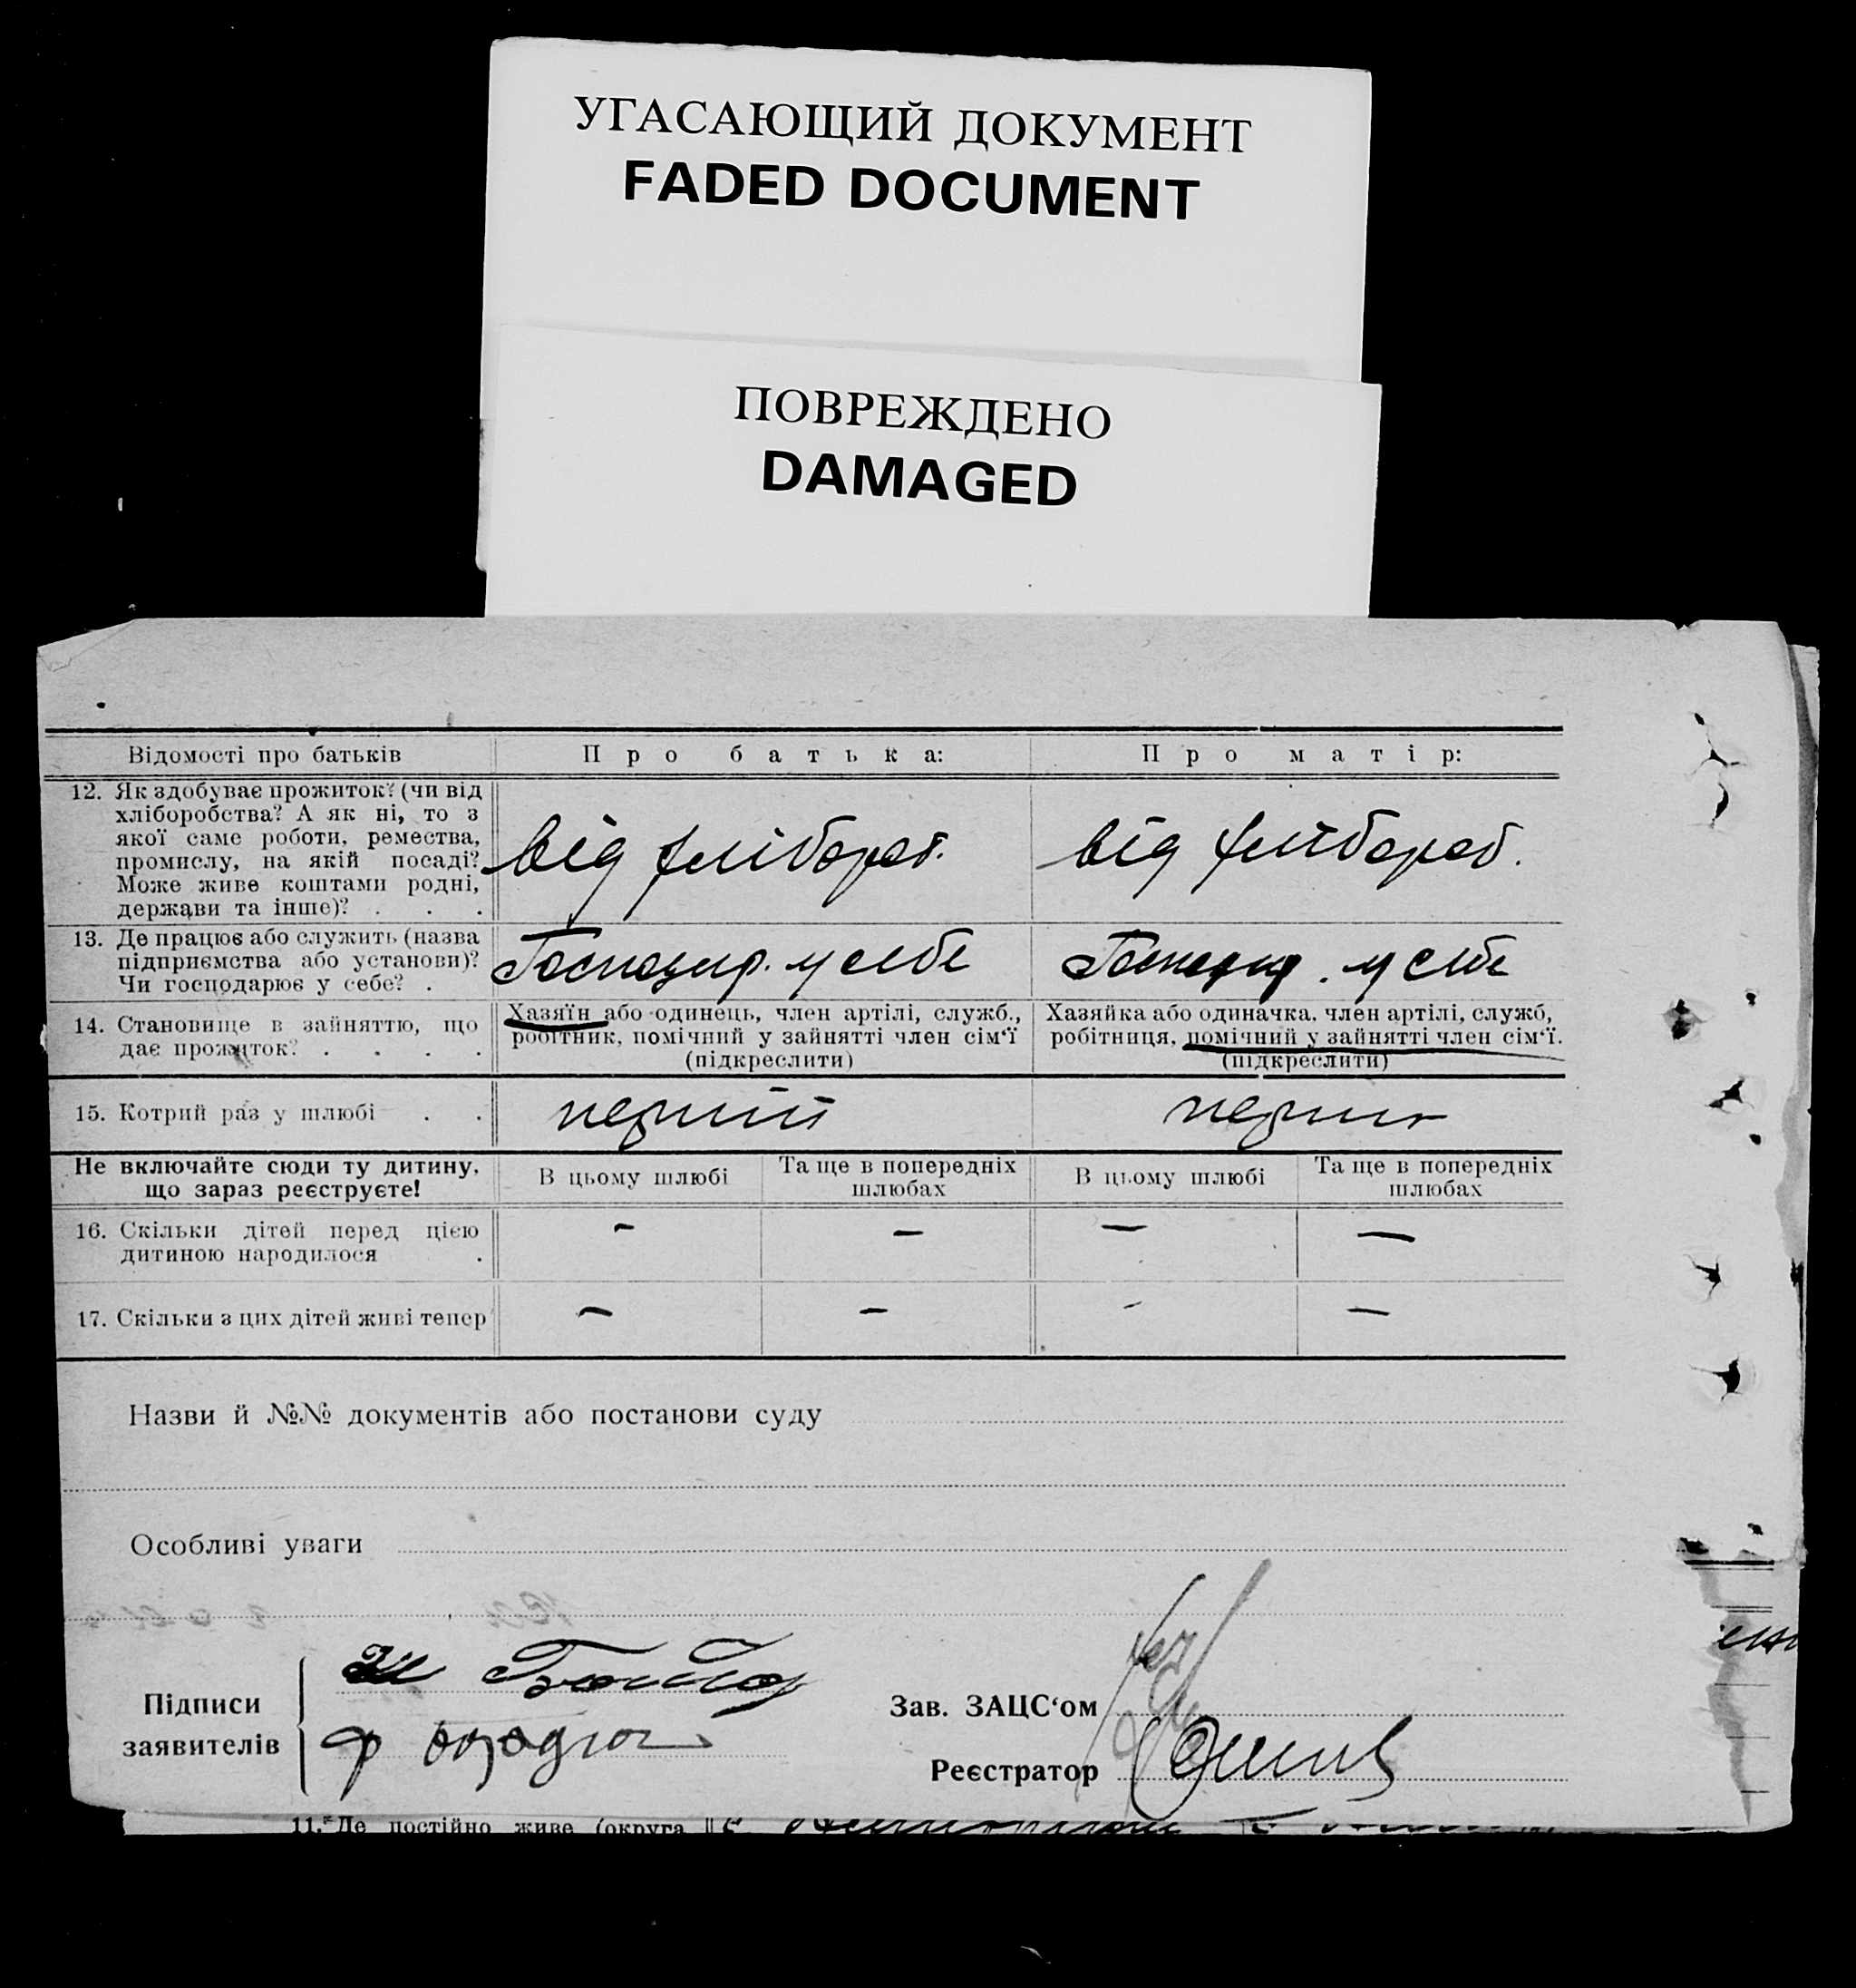 УГАСАЮЩИЙ ДОКУМЕНТ
FADED DOCUMENT
ПОВРЕЖДЕНО
DAMAGED
Відомості про батьків
Про батька:
Про матір:
12. Як здобуває прожиток? (чи від
хліборобства? А як ні, то з
якої саме роботи, ремества,
промислу, на якій посаді?
Може живе коштами родні,
держави та інше)? . . .
від хлібороб.
від хлібороб.
13. Де працює або служить (назва
підприємства або установи)?
Чи господарює у себе? .
Господар. у себе
Господар. у себе
14. Становище в зайняттю, що
дає прожиток? . . . .
Хазяїн або одинець, член артілі, служб.,
робітник, помічний у зайнятті член сім‘ї
(підкреслити)
Хазяйка або одиначка, член артілі, служб,
робітниця, помічний у зайнятті член сім‘ї.
(підкреслити)
15. Котрий раз у шлюбі . .
перший
перши
Не включайте сюди ту дитину,
що зараз реєструєте!
В цьому шлюбі
Та ще в попередніх
шлюбах
В цьому шлюбі
Та ще в попередніх
шлюбах
16. Скільки дітей перед цією
дитиною народилося .
– – – –
17. Скільки з цих дітей живі тепер
– – – –
Назви й №№ документів або постанови суду
Особливі уваги
Підписи
заявителів
Зав. ЗАЦС‘ом
Реєстратор
11. Де постійно живе (округа